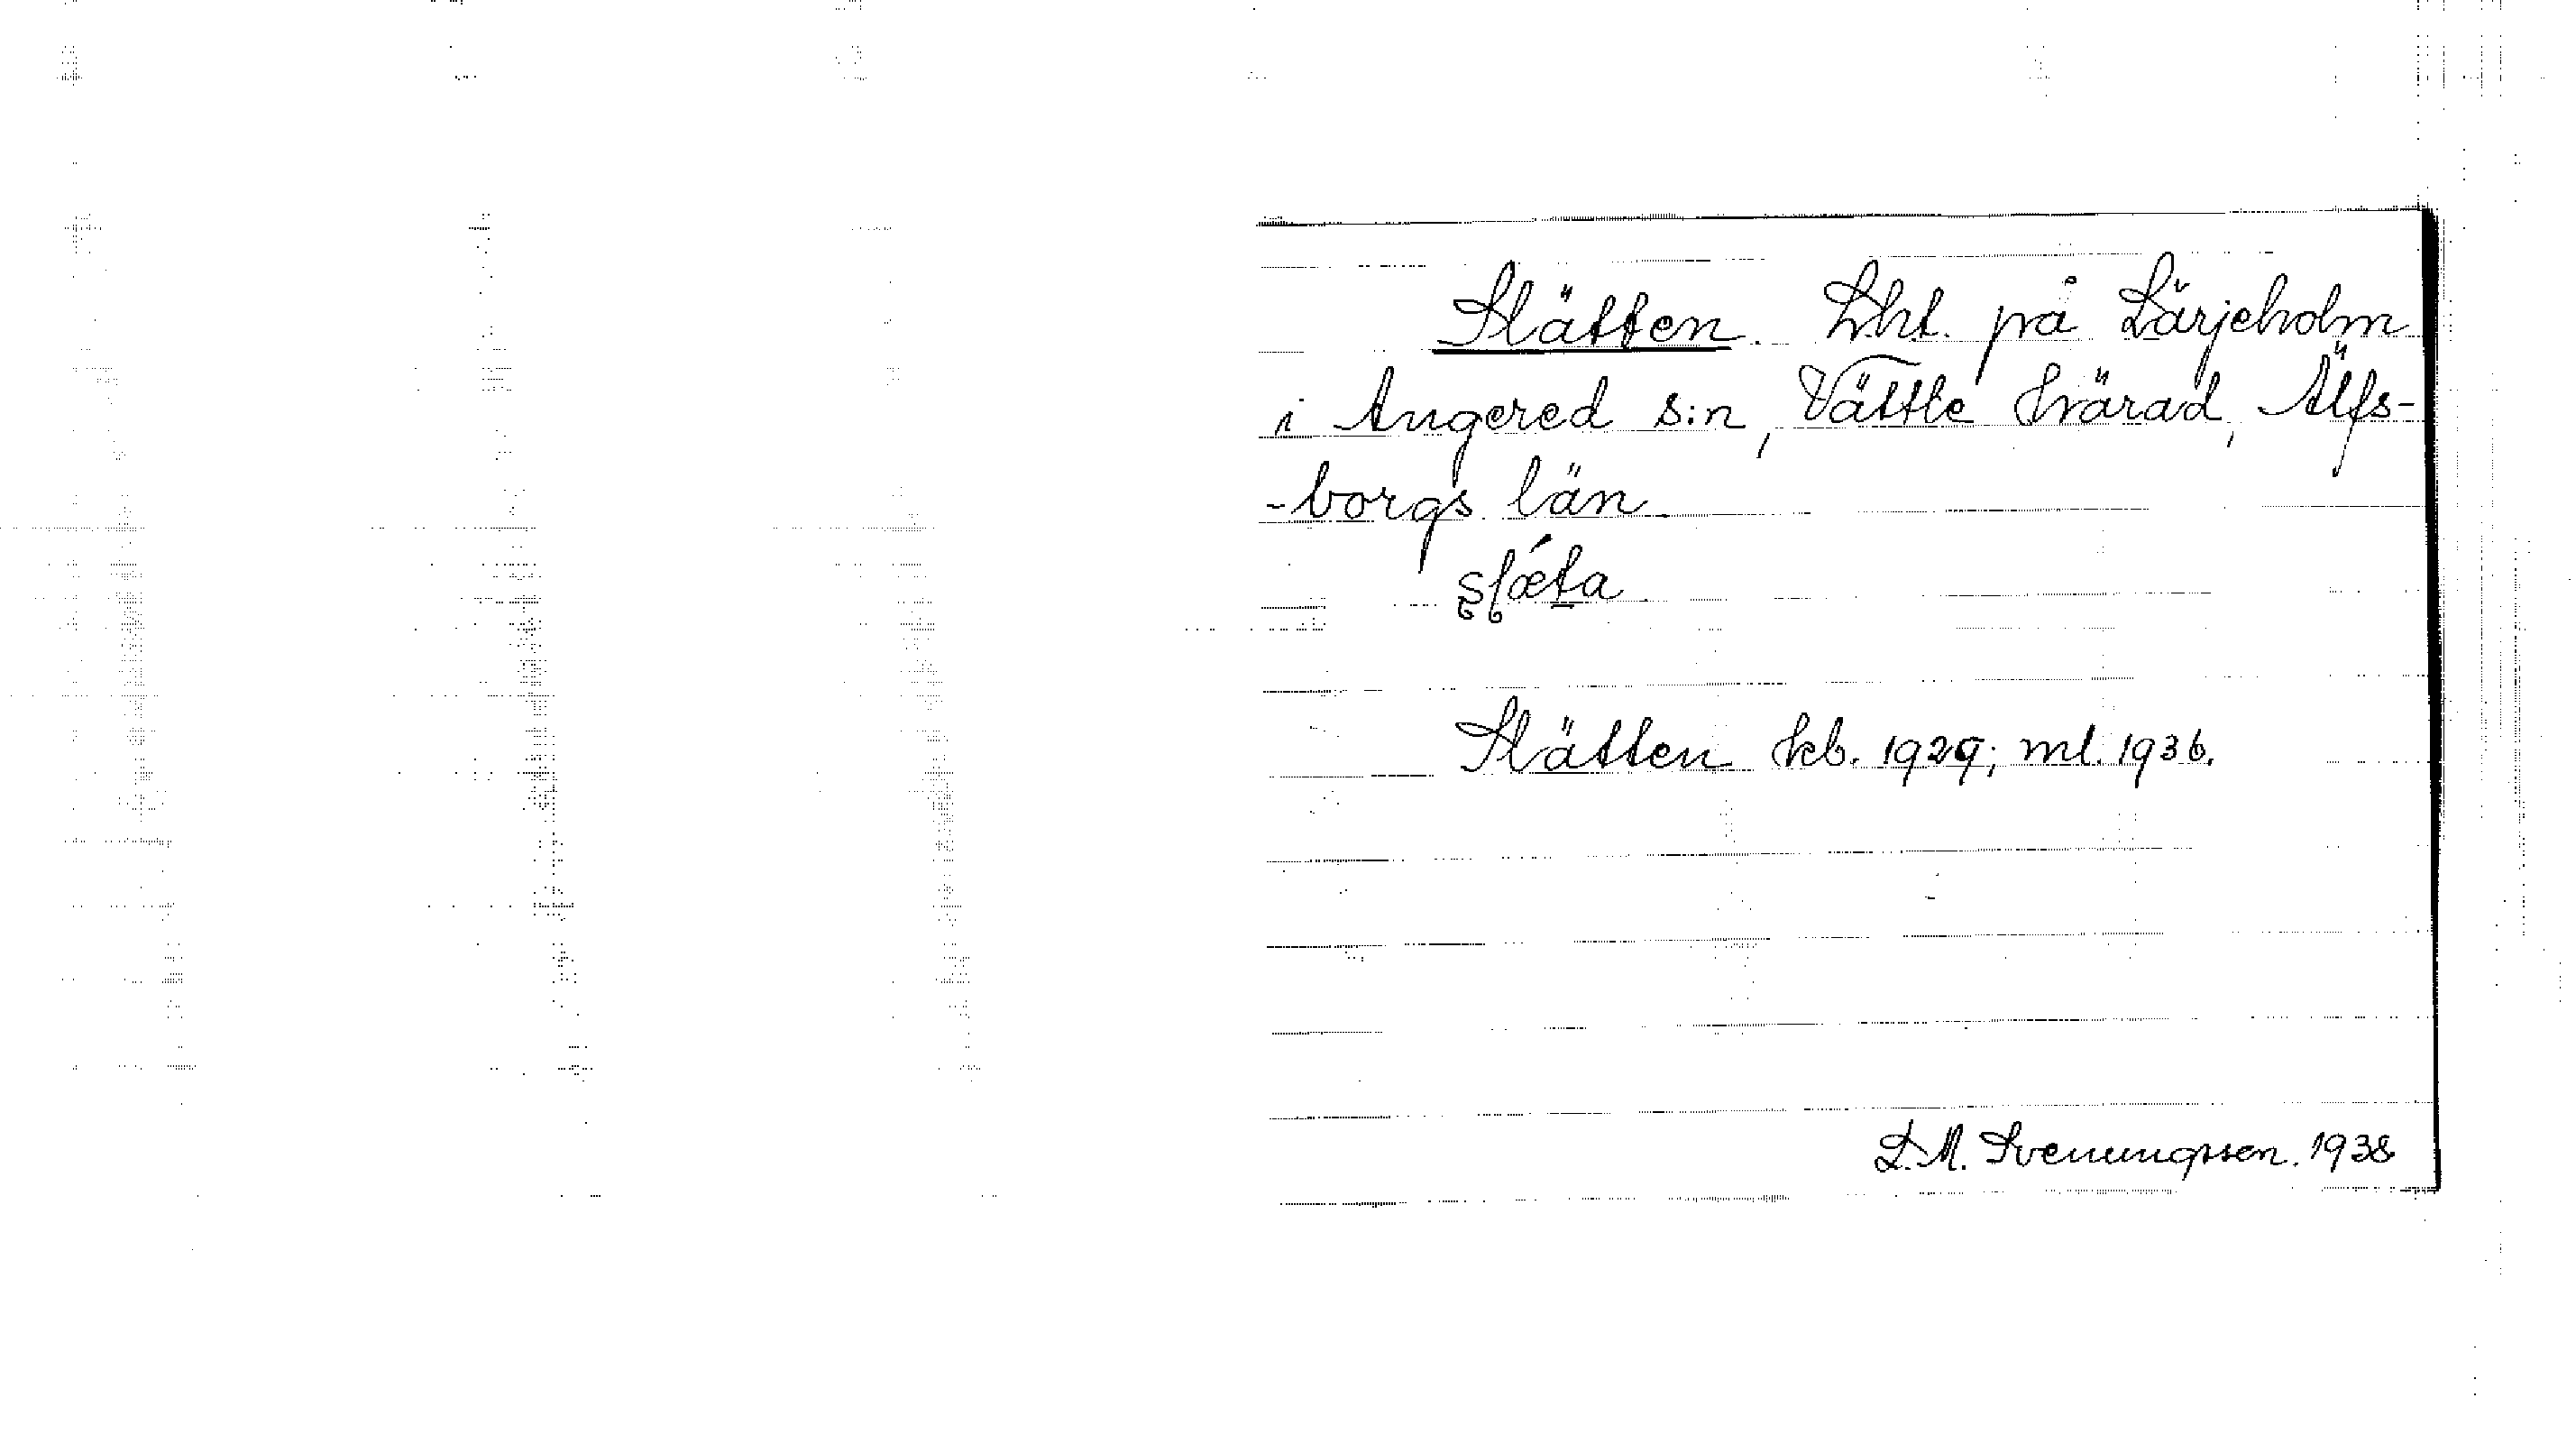 Slätten. Lht. på Lärjeholm
i Angered s:n, Vättle härad, Älfs-
-borgs län.
slǽta
Slätten kb. 1929; ml. 1936.
L.M. Svenungsson. 1938